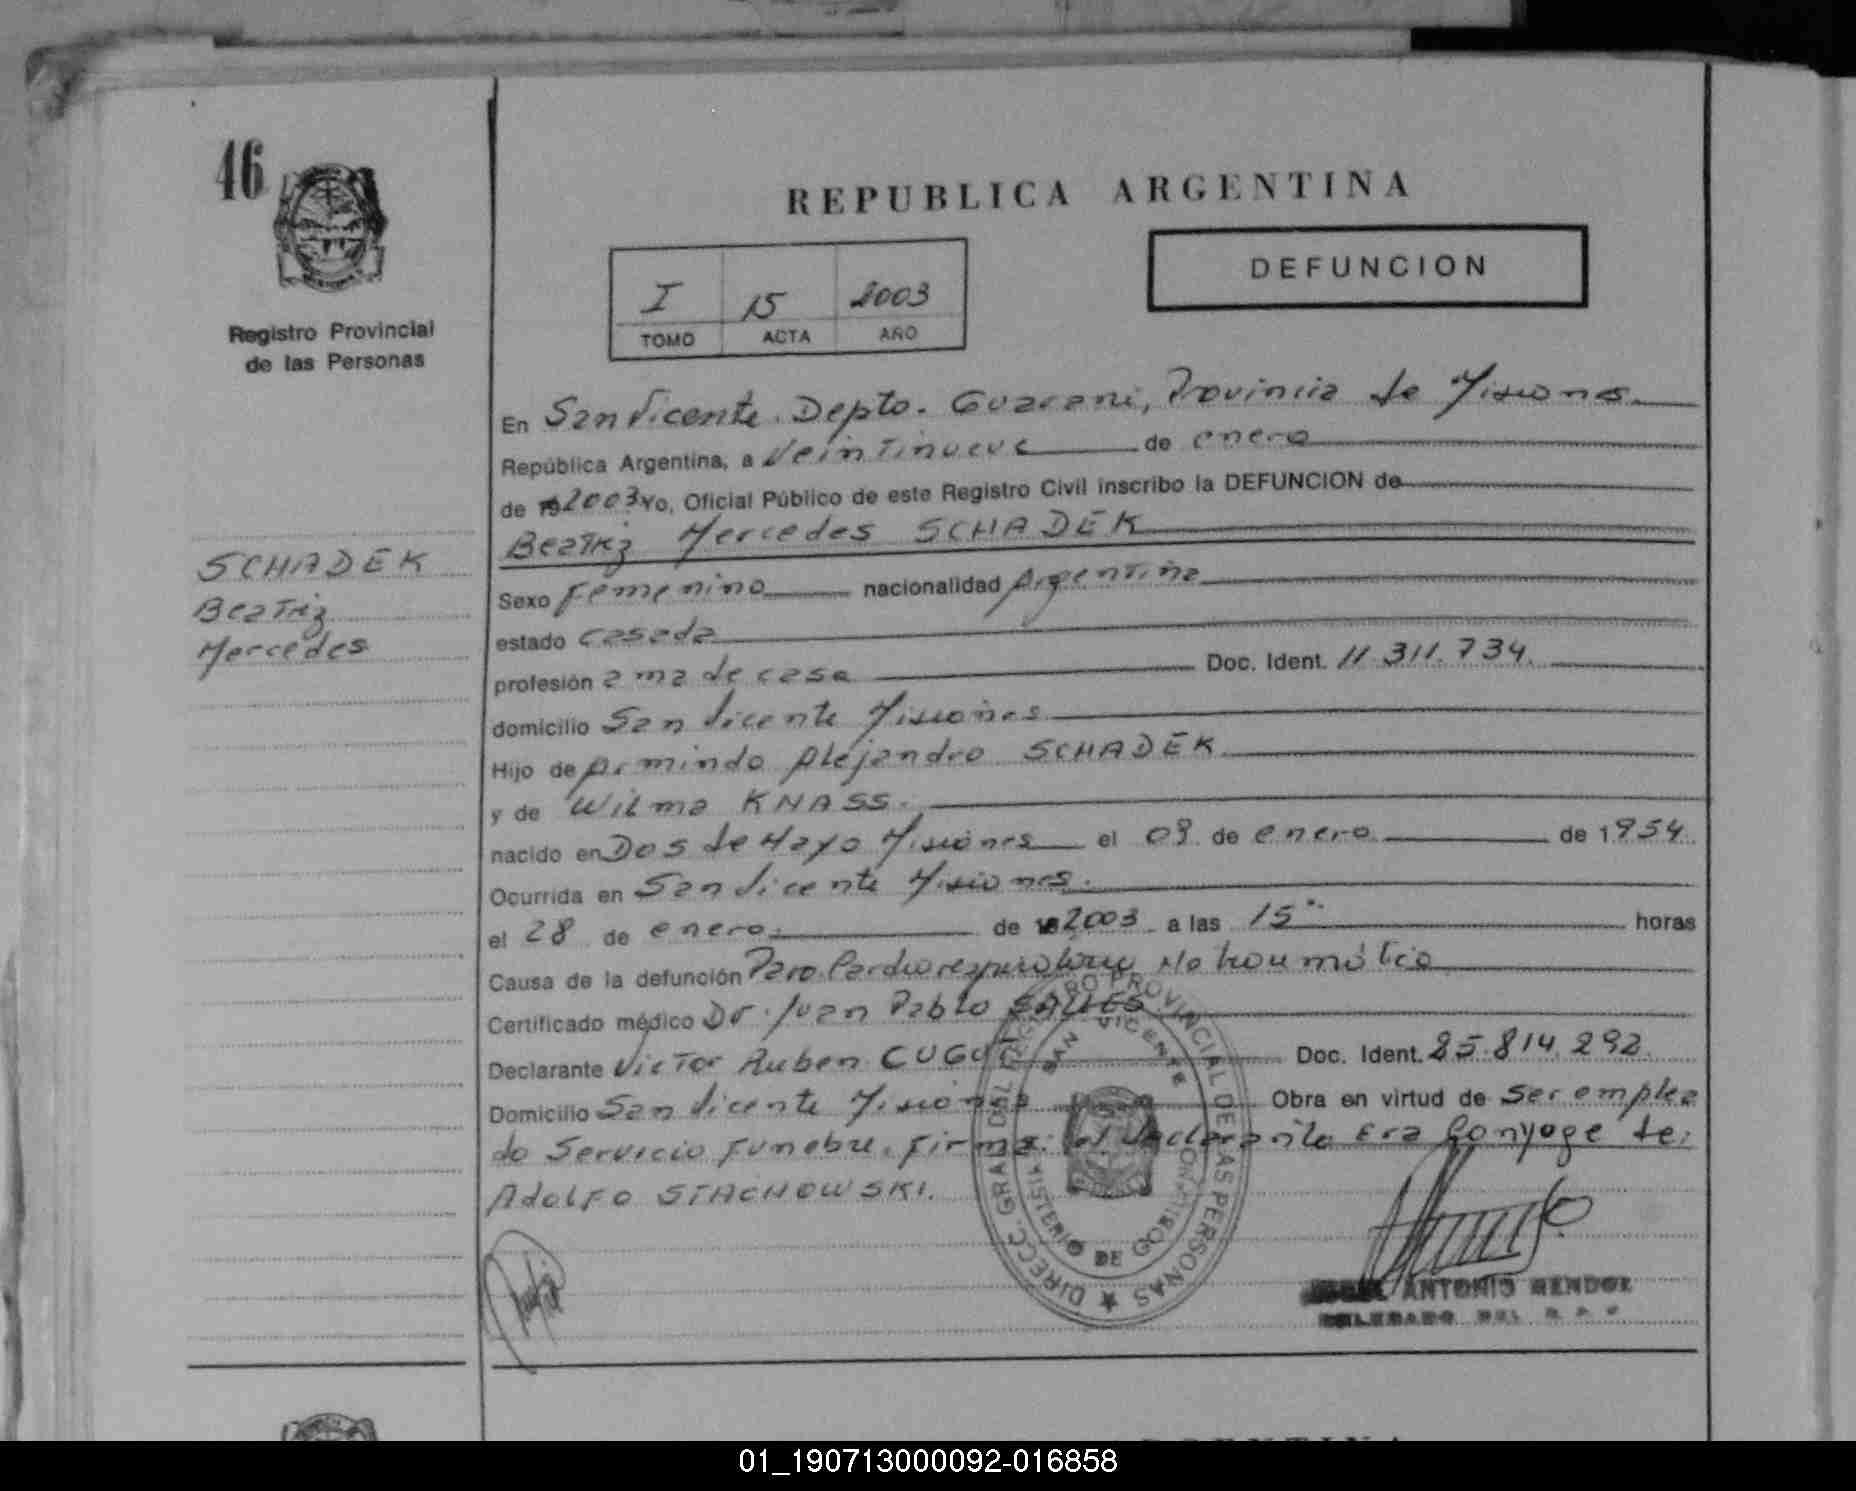 46
REPUBLICA ARGENTINA
DEFUNCION
I 15 2003
TOMO ACTA AÑO
Registro Provincial
de las Personas
En San Vicente. Depto. Guarani, Provincia de Misiones.
República Argentina, a Veintinueve de enero
de 19 2003 Yo, Oficial Público de este Registro Civil inscribo la DEFUNCION de
Beatriz Mercedes SCHADEK
SCHADEK
Beatriz
Mercedes
Sexo Femenino nacionalidad Argentina
estado casada
profesión ama de casa Doc. Ident. 11.311.734.
domicilio San Vicente Misiones
Hijo de Armindo Alejandro SCHADEK
y de Wilma KNASS.
nacido en Dos de Mayo Misiones el 09 de enero de 1954.
Ocurrida en San Vicente Misiones.
el 28 de enero. de 2003 a las 15 horas
Causa de la defunción Paro Cardiorespiratorio No traumático
Certificado médico Dr. Juan Pablo
Declarante Victor Ruben Doc. Ident. 25.814.292.
Domicilio San Vicente Misiones Obra en virtud de Ser emplea
do Servicio Funebre. Firma: el declarante Era Conyuge de:
Adolfo STACHOWSKI.
DIRECC. GRAL. DEL REGISTRO PROVINCIAL DE LAS PERSONAS
SAN VICENTE
MINISTERIO DE GOBIERNO
ANTONIO MENDOZ
DELEGADO DEL R. P. P.
ARGENTINA
01_190713000092-016858